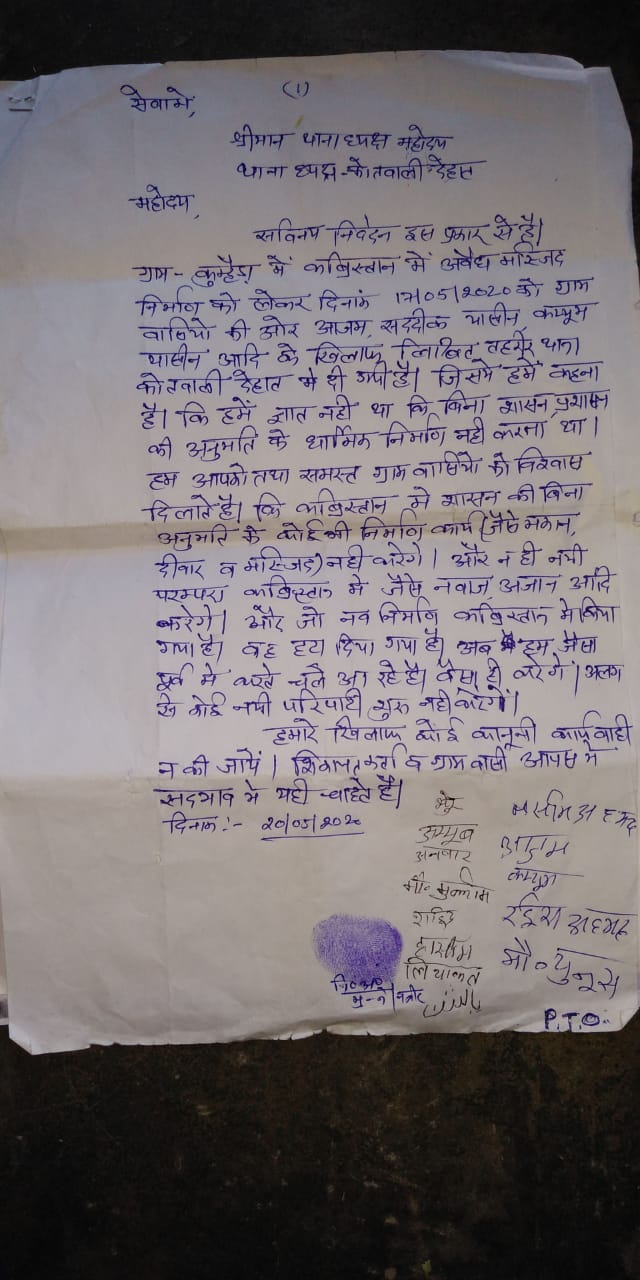 (1)
सेवामे,
श्रीमान थाना ध्यक्ष महोदय
थाना ध्यक्ष-कोतवाली-देहात
महोदय,
सविनय निवेदन इस प्रकार से है।
ग्राम- में कब्रिस्तान में अवैध मस्जिद
निर्माण को लेकर दिनांक 17/05/2020 को ग्राम
वासियो की ओर आजम, सददीक यासीन कय्यूम
यासीन आदि के खिलाफ लिखित तहरीर थाना
कोतवाली देहात मे दी गयी है। जिसमे हमें कहना
है। कि हमें ज्ञात नही था कि बिना शासन प्रशासन
की अनुमति के धार्मिक निर्माण नही करना था।
हम आपको तथा समस्त ग्राम वासियो को विश्वास
दिलाते है। कि कब्रिस्तान मे शासन की बिना
अनुमति के कोई भी निर्माण कार्य (जैसे मकान,
दीवार व मस्जिद) नही करेगे। और न ही नयी
परम्परा कब्रिस्तान मे जैसे नवाज, अजान आदि
करेगे। और जो नव निर्माण कब्रिस्तान मे किया
गया है। वह हटा दिया गया है। अब हम जैसा
पूर्व मे करते चले आ रहे है। वैसा ही करेगे। अलग
से कोई नयी परिपाटी शुरू नही करेगें।
हमारे खिलाफ कोई कानूनी कार्यवाही
न की जायें। शिकायतकर्ता व ग्राम वासी आपस मे
सदभाव मे यही चाहते है।
दिनांक:- 20/05/2020
नसीम अहमद
अय्यूब
अनवार
आजम
कय्यूम
मौ०
रईस अहमद
हासीम
मौ० युनूस
लियाकत
नि०अ०
P.T.O.